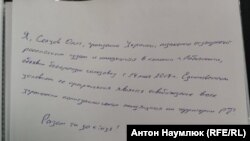 Я, Сенцов Олег, гражданин Украины, незаконно осужденный
российским судом и находящийся в колонии г. Лабытнанги,
объявил бессрочную голодовку с 14 мая 2018 г. Единственным
условием её прекращения является освобождение всех
украинских политзаключенных находящихся на территории РФ.
Антон Наумлюк (RFE/RL)